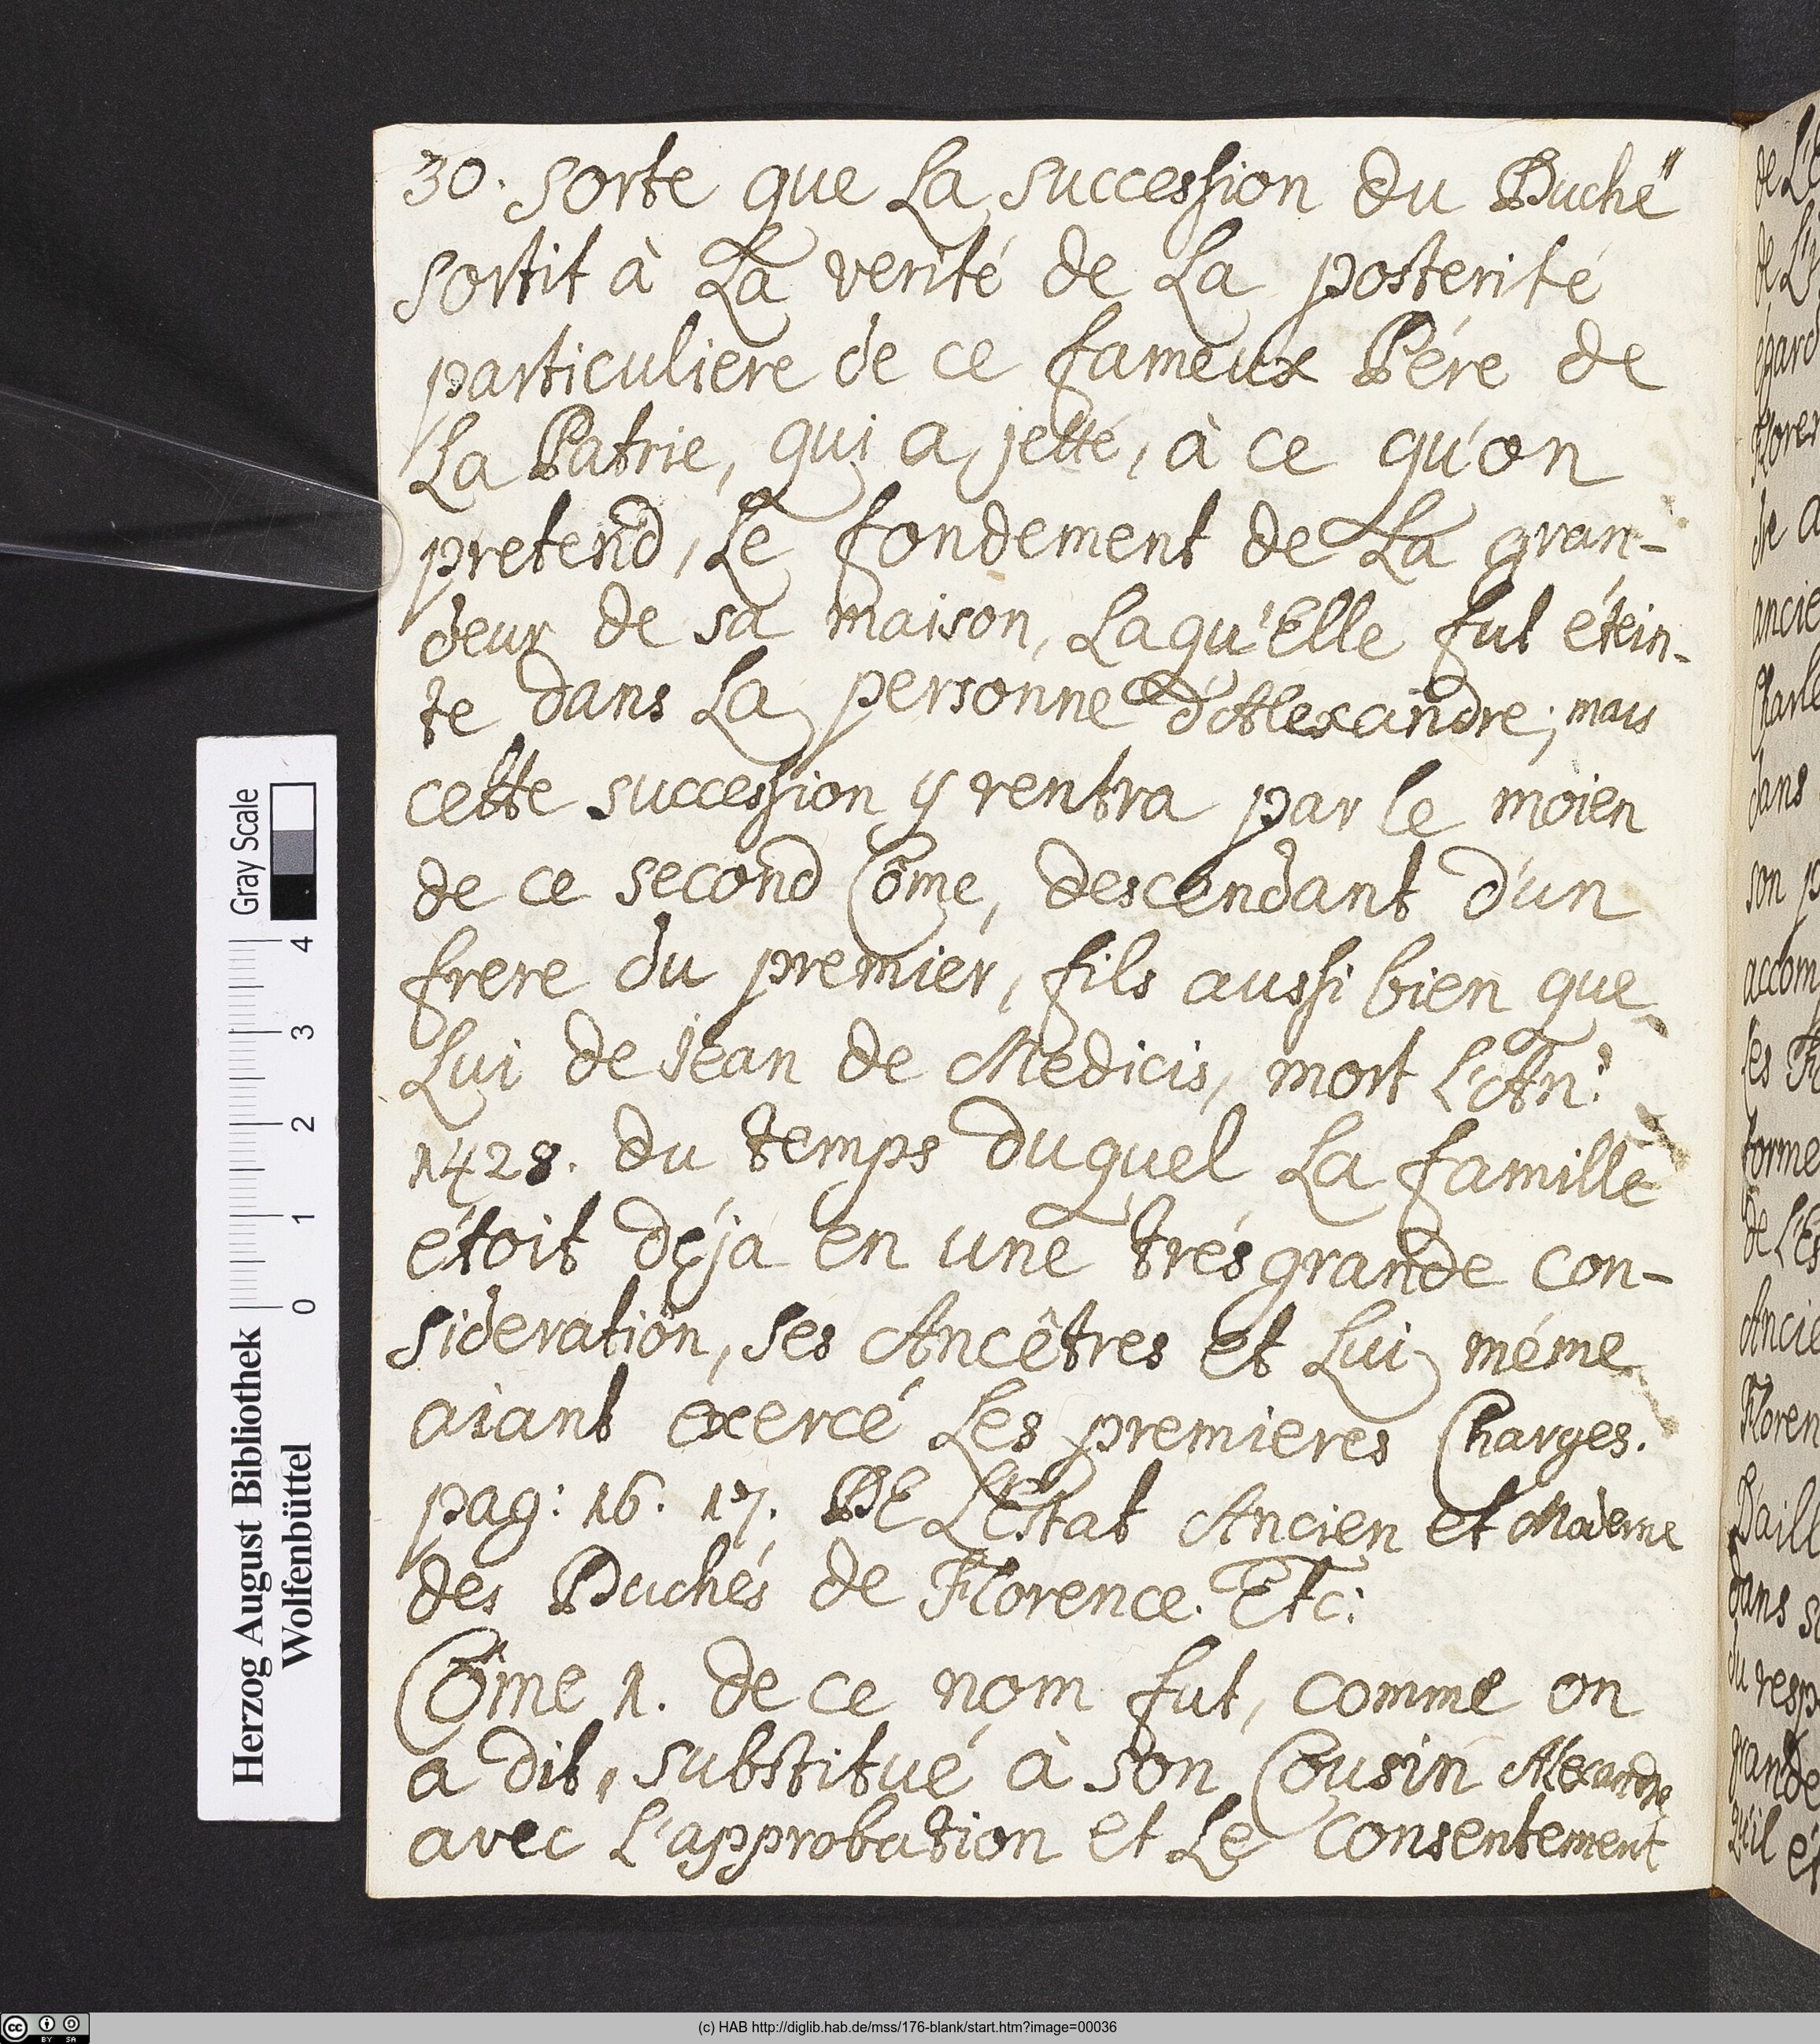 30. sorte que La succession du Duché
sortit à La verité de La posterité
particuliere de ce fameux Pére de
La Patrie, qui a jetté, à ce qu'on
pretend, Le fondement de La gran-
deur de sa maison, Laqu'Elle fut étein-
te dans La personne d'Alexandre; mais
cette succession y rentra par le moien
de ce second Côme, descendant d'un
frere du premier, fils aussi bien que
Lui de Jean de Medicis, mort L'An:
1428. du temps duquel La famille
étoit déja en une trés grande con-
sideration, ses Ancêtres et Lui méme
aiant exercé Les premieres Charges.
pag: 16. 17. DE L'Estat Ancien et Moderne
des Duchés de Florence. Etc:
Côme 1. de ce nom fut, comme on
a dit, substitué à son Cousin Alexandre
avec L'approbation et Le consentement
Gray Scale
4
3
2
1
0
Herzog August Bibliothek
Wolfenbüttel
(c) HAB http://diglib.hab.de/mss/176-blank/start.htm?image=00036
cc BY SA